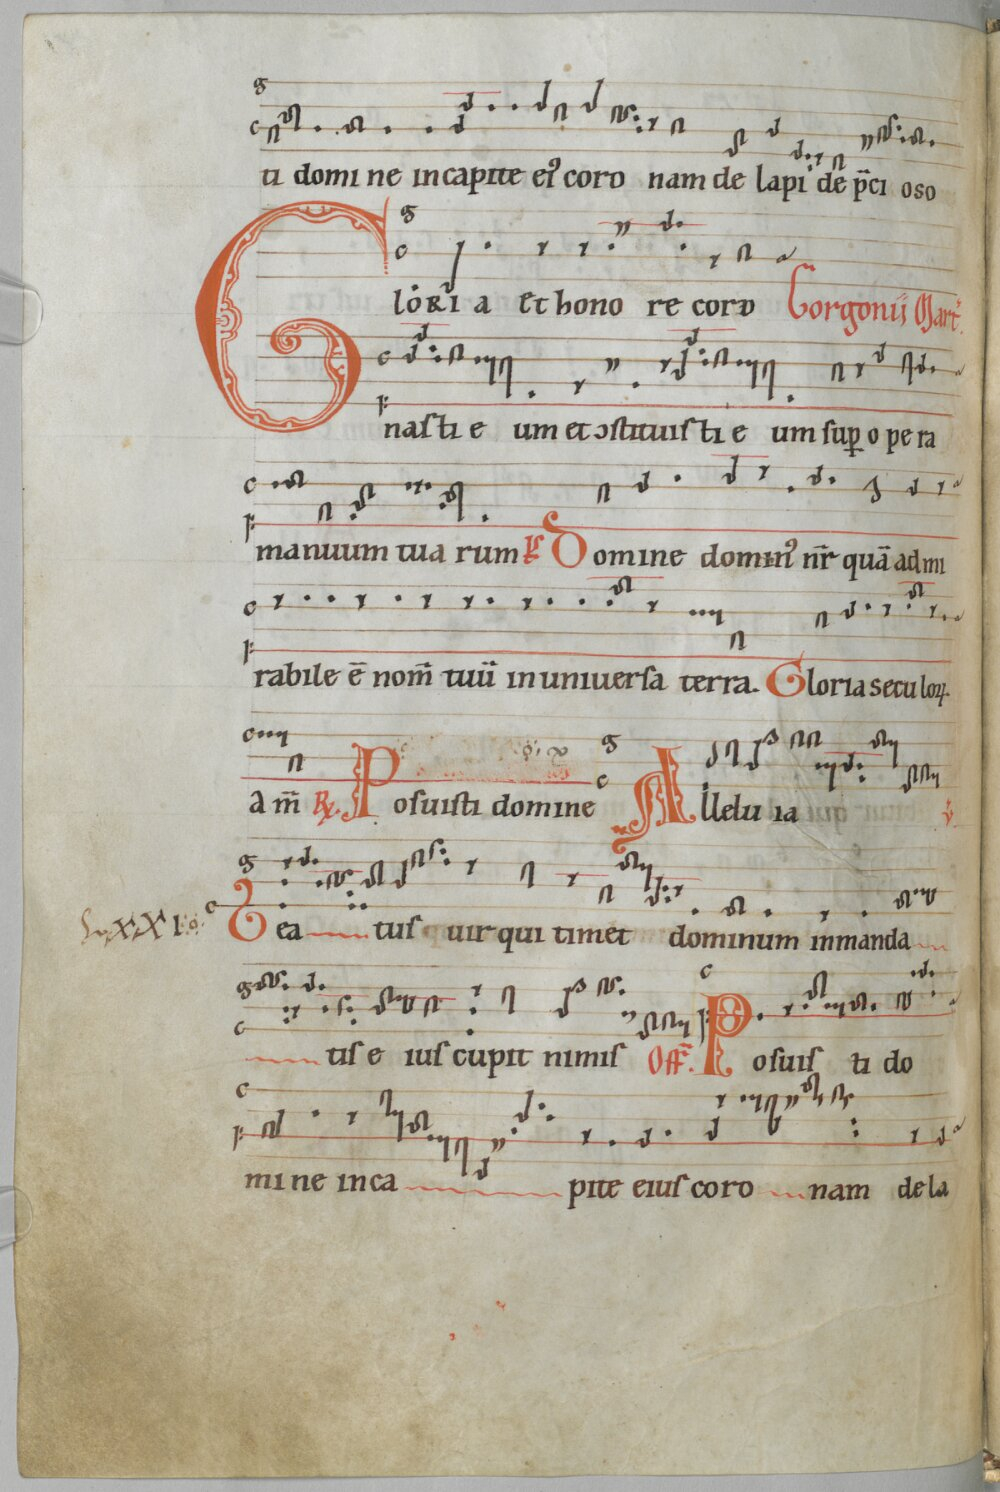 ti domi ne incapite ei⁹ coro nam de lapi de p̄ci oso
GlORI a et hono re coro Gorgonii Mart̄.
nasti e um et ɔstituisti e um suꝑ o pe ra
manuum tua rum P̄s Domine domin⁹ nr̄ quā admi
rabile ē nom̄ tuū in universa terra. Gloria secu loꝝ.
a m̄ ℞. Posuisti domine Allelu ia ℣
Bea tus uir qui timet dominum in manda
tis e ius cupit nimis Off̄. Posuis ti do
mi ne in ca pite eius coro nam de la